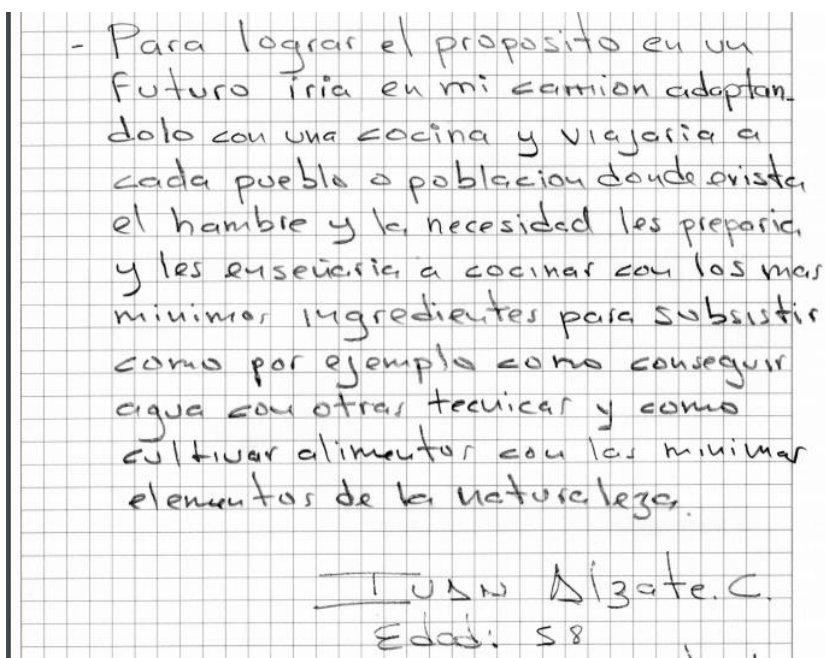 - Para lograr el proposito en un
futuro iria en mi camion adaptan-
dolo con una cocina y viajaria a
cada pueblo o poblacion donde exista
el hambre y la necesidad les preparia
y les enseñaria a cocinar con los mas
minimos ingredientes para subsistir
como por ejemplo como conseguir
agua con otras tecnicas y como
cultivar alimentos con las minimas
elementos de la naturaleza.
IVAN Alzate. C.
Edad: 58